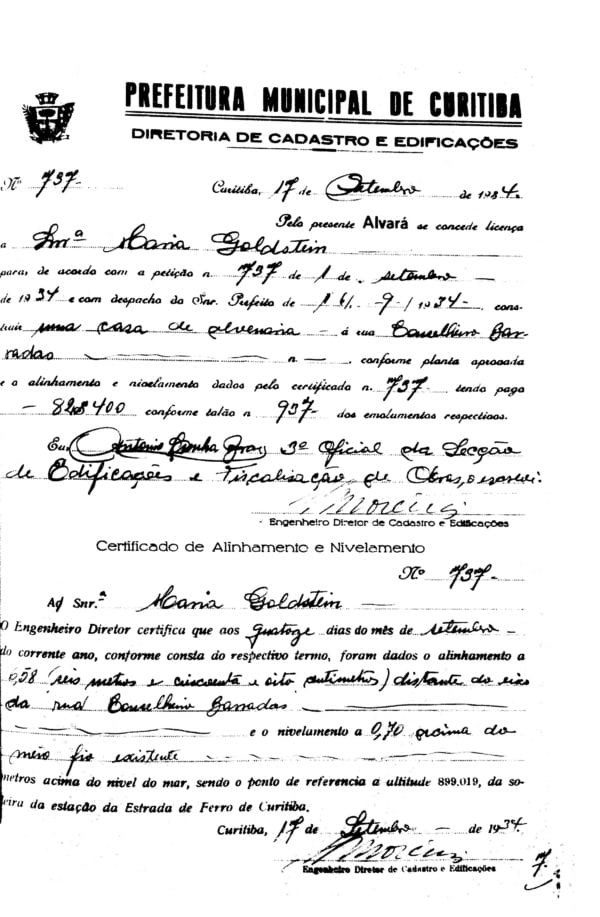 PREFEITURA MUNICIPAL DE CURITIBA
DIRETORIA DE CADASTRO E EDIFICAÇÕES
Nº 737- Curitiba, 17 de Setembro de 1934.
Pelo presente Alvará se concede licença
a Snrª Maria Goldstein
para: de acordo com a petição n. 737 de 1 de setembro
de 1934 e com despacho do Snr. Prefeito de 16/-9-/1934- cons-
truir uma casa de alvenaria - á rua Conselheiro Bar-
radas n. — , conforme planta aprovada
e o alinhamento e nivelamento dados pelo certificado n. 737 tendo pago
conforme talão n 937- dos emolumentos respectivos.
Eu, Antonio 3º Oficial da Secção
de Edificações e Fiscalização de Obras, o escrevi.
Engenheiro Diretor de Cadastro e Edificações
Certificado de Alinhamento e Nivelamento
Nº 737-
Ao Snr.ª Maria Goldstein
O Engenheiro Diretor certifica que aos quatorze dias do mês de setembro -
do corrente ano, conforme consta do respectivo termo, foram dados o alinhamento a
6,58 (seis metros e cincoenta e oito centimetros) distante do eixo
da rua Conselheiro Barradas
e o nivelamento a 0,70 acima do
meio fio existente
metros acima do nivel do mar, sendo o ponto de referencia a altitude 899,019, da so-
leira da estação da Estrada de Ferro de Curitiba.
Curitiba, 17 de Setembro - de 1934.
Engenheiro Diretor de Cadastro e Edificações
7